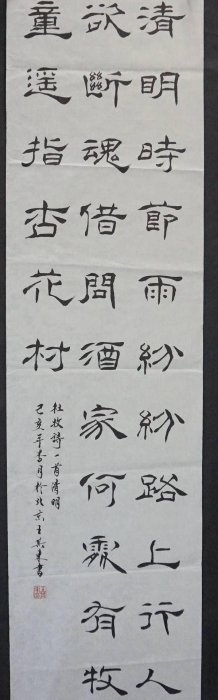 清明時節雨紛紛路上行人
欲斷魂借問酒家何處有牧
童遥指杏花村
杜牧詩一首清明
己亥年春月於北京王書